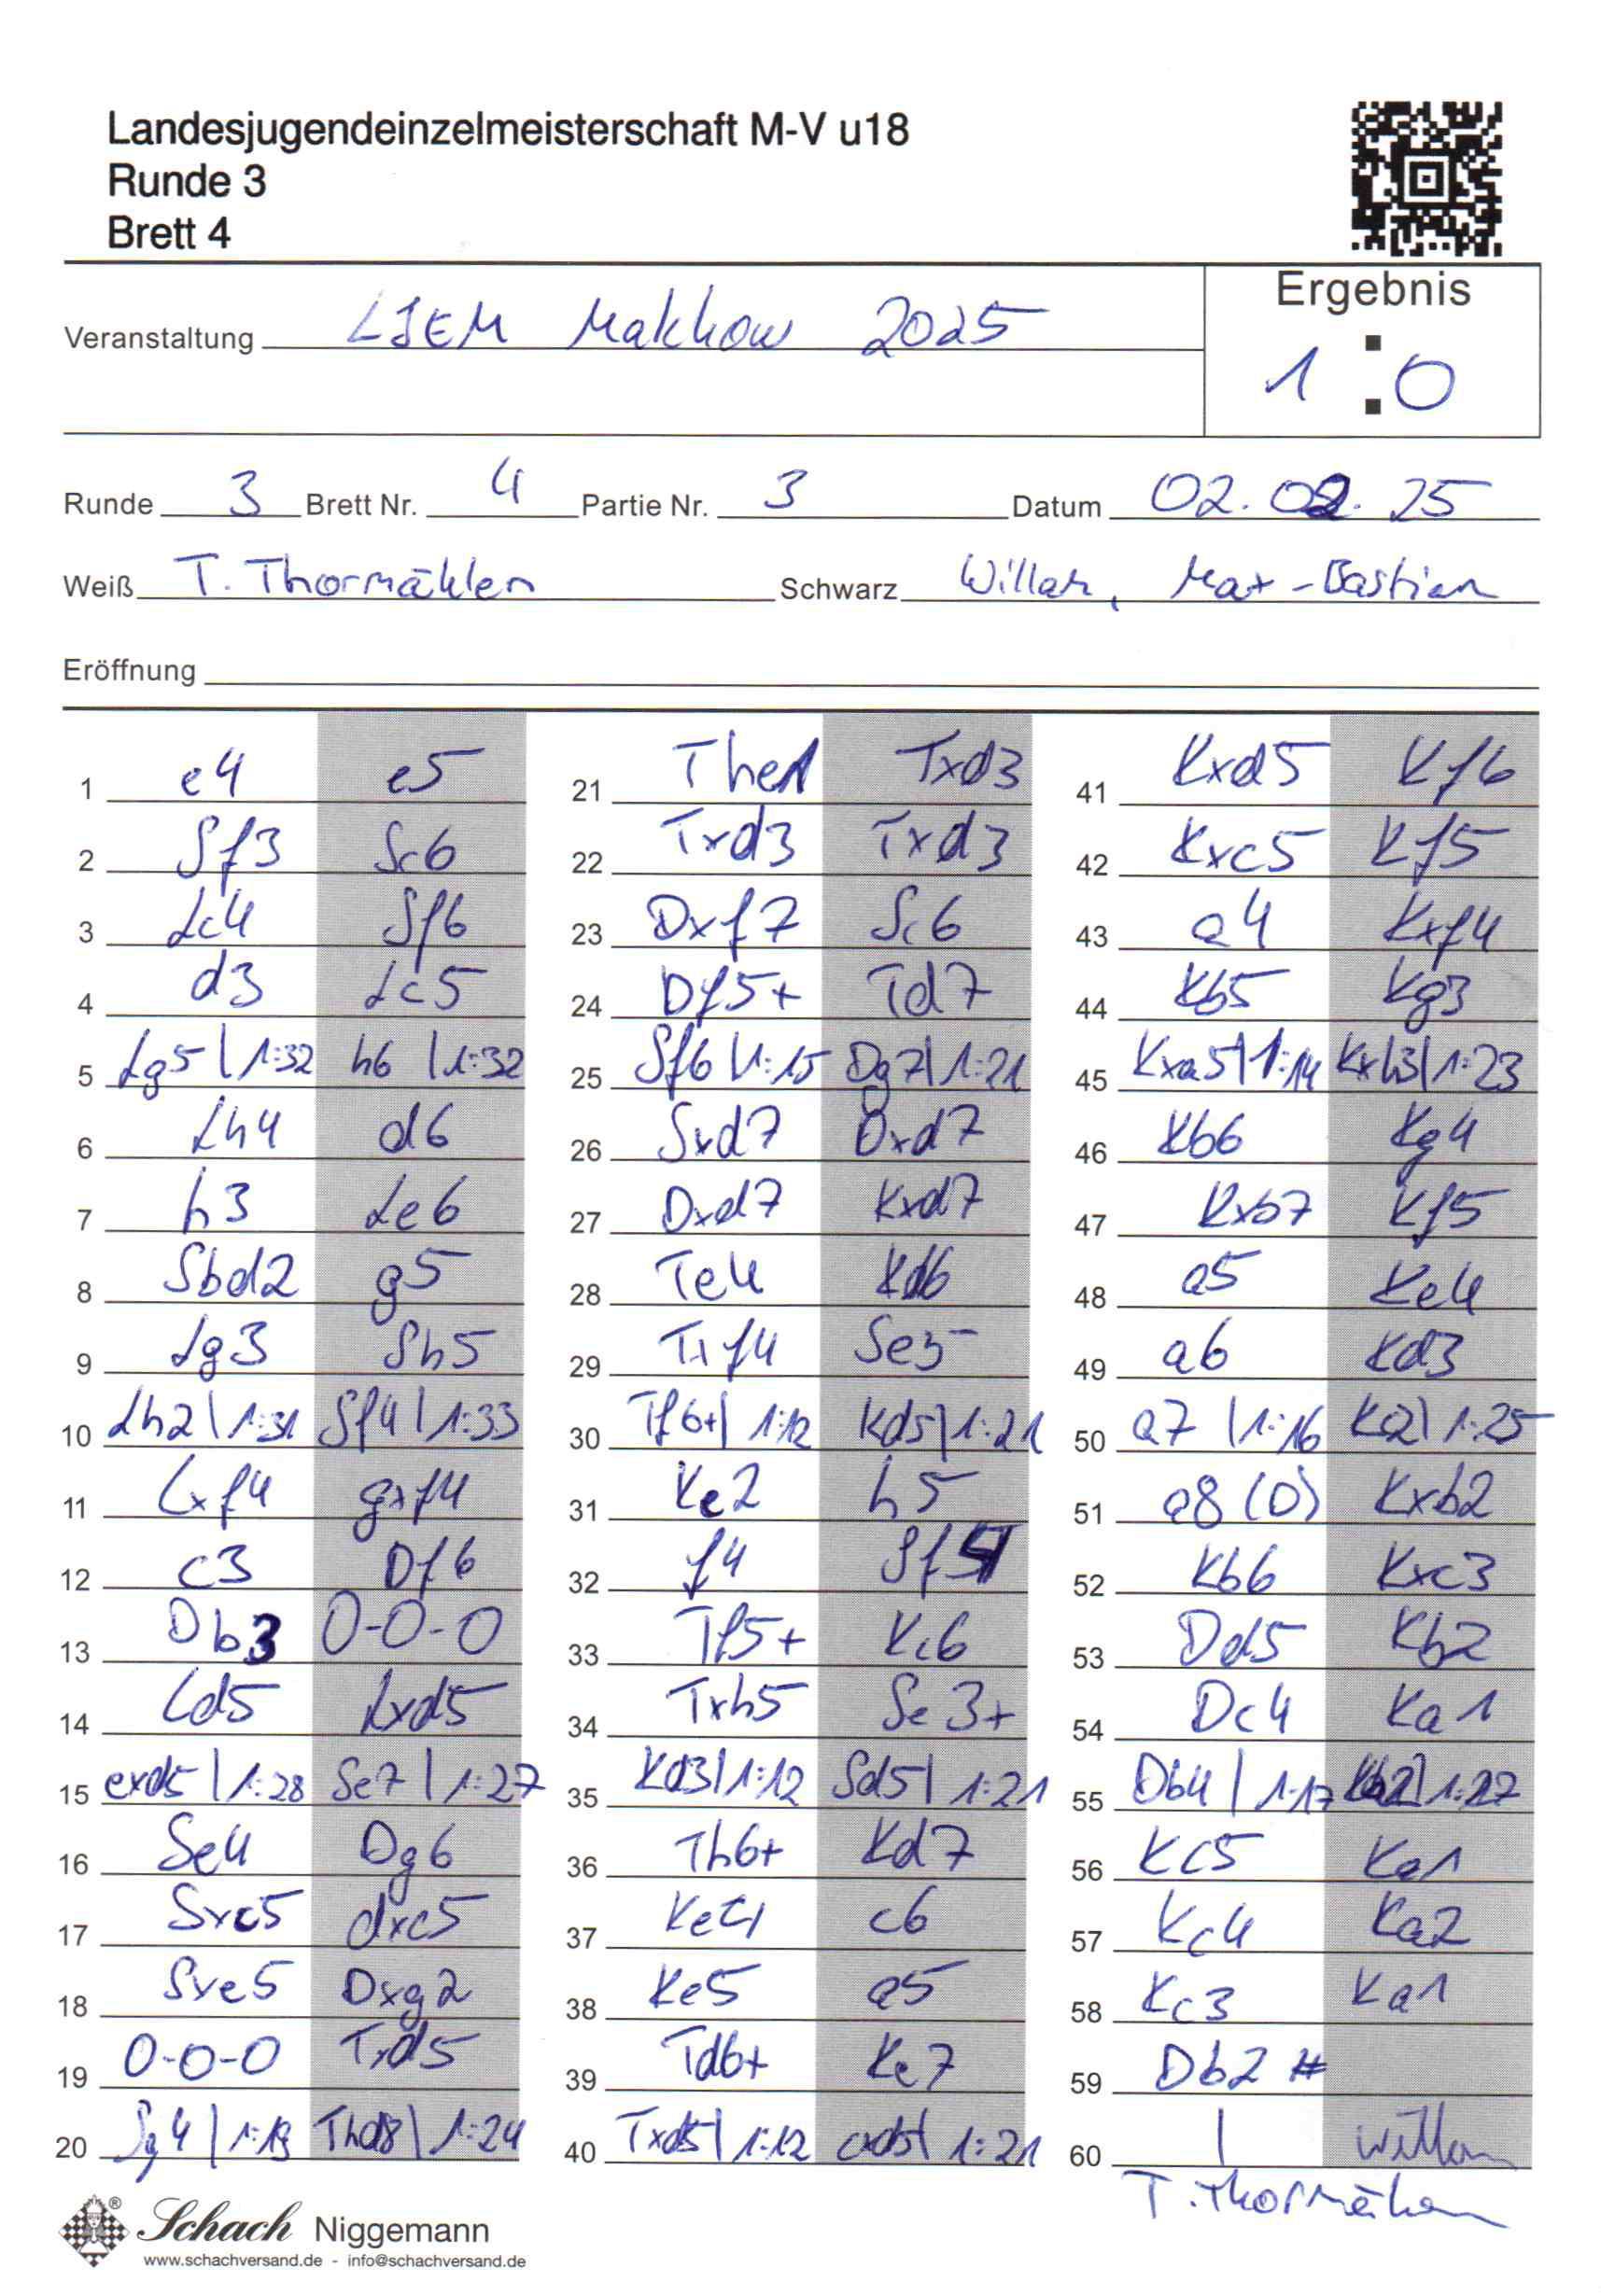 Landesjugendeinzelmeisterschaft M-V u18
Runde 3
Brett 4
Ergebnis
Veranstaltung LJEM Malchow 2025
1 : 0
Runde 3 Brett Nr. 4 Partie Nr. 3 Datum 02.02.25
Weiß T. Thormählen Schwarz Max-Bastian
Eröffnung
1 e4 e5
2 Sf3 Sc6
3 Lc4 Sf6
4 d3 Lc5
5 Lg5 | 1:32 h6 | 1:32
6 Lh4 d6
7 h3 Le6
8 Sbd2 g5
9 Lg3 Sh5
10 Lh2 | 1:31 Sf4 | 1:33
11 Lxf4 gxf4
12 c3 Df6
13 Db3 0-0-0
14 Ld5 Lxd5
15 exd5 | 1:28 Se7 | 1:27
16 Se4 Dg6
17 Sxc5 dxc5
18 Sxe5 Dxg2
19 0-0-0 Txd5
20 Sg4 | 1:19 Thd8 | 1:24
21 The1 Txd3
22 Txd3 Txd3
23 Dxf7 Sc6
24 Df5+ Td7
25 Sf6 | 1:15 Dg7 | 1:21
26 Sxd7 Dxd7
27 Dxd7 Kxd7
28 Te4 Kd6
29 Txf4 Se5
30 Tf6+ | 1:12 Kd5 | 1:21
31 Ke2 h5
32 f4 Sf5
33 Tf5+ Kc6
34 Txh5 Se3+
35 Kd3 | 1:12 Sd5 | 1:21
36 Th6+ Kd7
37 Ke4 c6
38 Ke5 a5
39 Td6+ Ke7
40 Txd5 | 1:12 cxd5 | 1:21
41 Kxd5 Kf6
42 Kxc5 Kf5
43 a4 Kxf4
44 Kb5 Kg3
45 Kxa5 | 1:14 Kxh3 | 1:23
46 Kb6 Kg4
47 Kxb7 Kf5
48 a5 Ke4
49 a6 Kd3
50 a7 | 1:16 Kc2 | 1:25
51 a8 (D) Kxb2
52 Kb6 Kxc3
53 Dd5 Kb2
54 Dc4 Ka1
55 Db4 | 1:17 Ka2 | 1:27
56 Kc5 Ka1
57 Kc4 Ka2
58 Kc3 Ka1
59 Db2 #
60
T. Thormählen
® Schach Niggemann
www.schachversand.de - info@schachversand.de